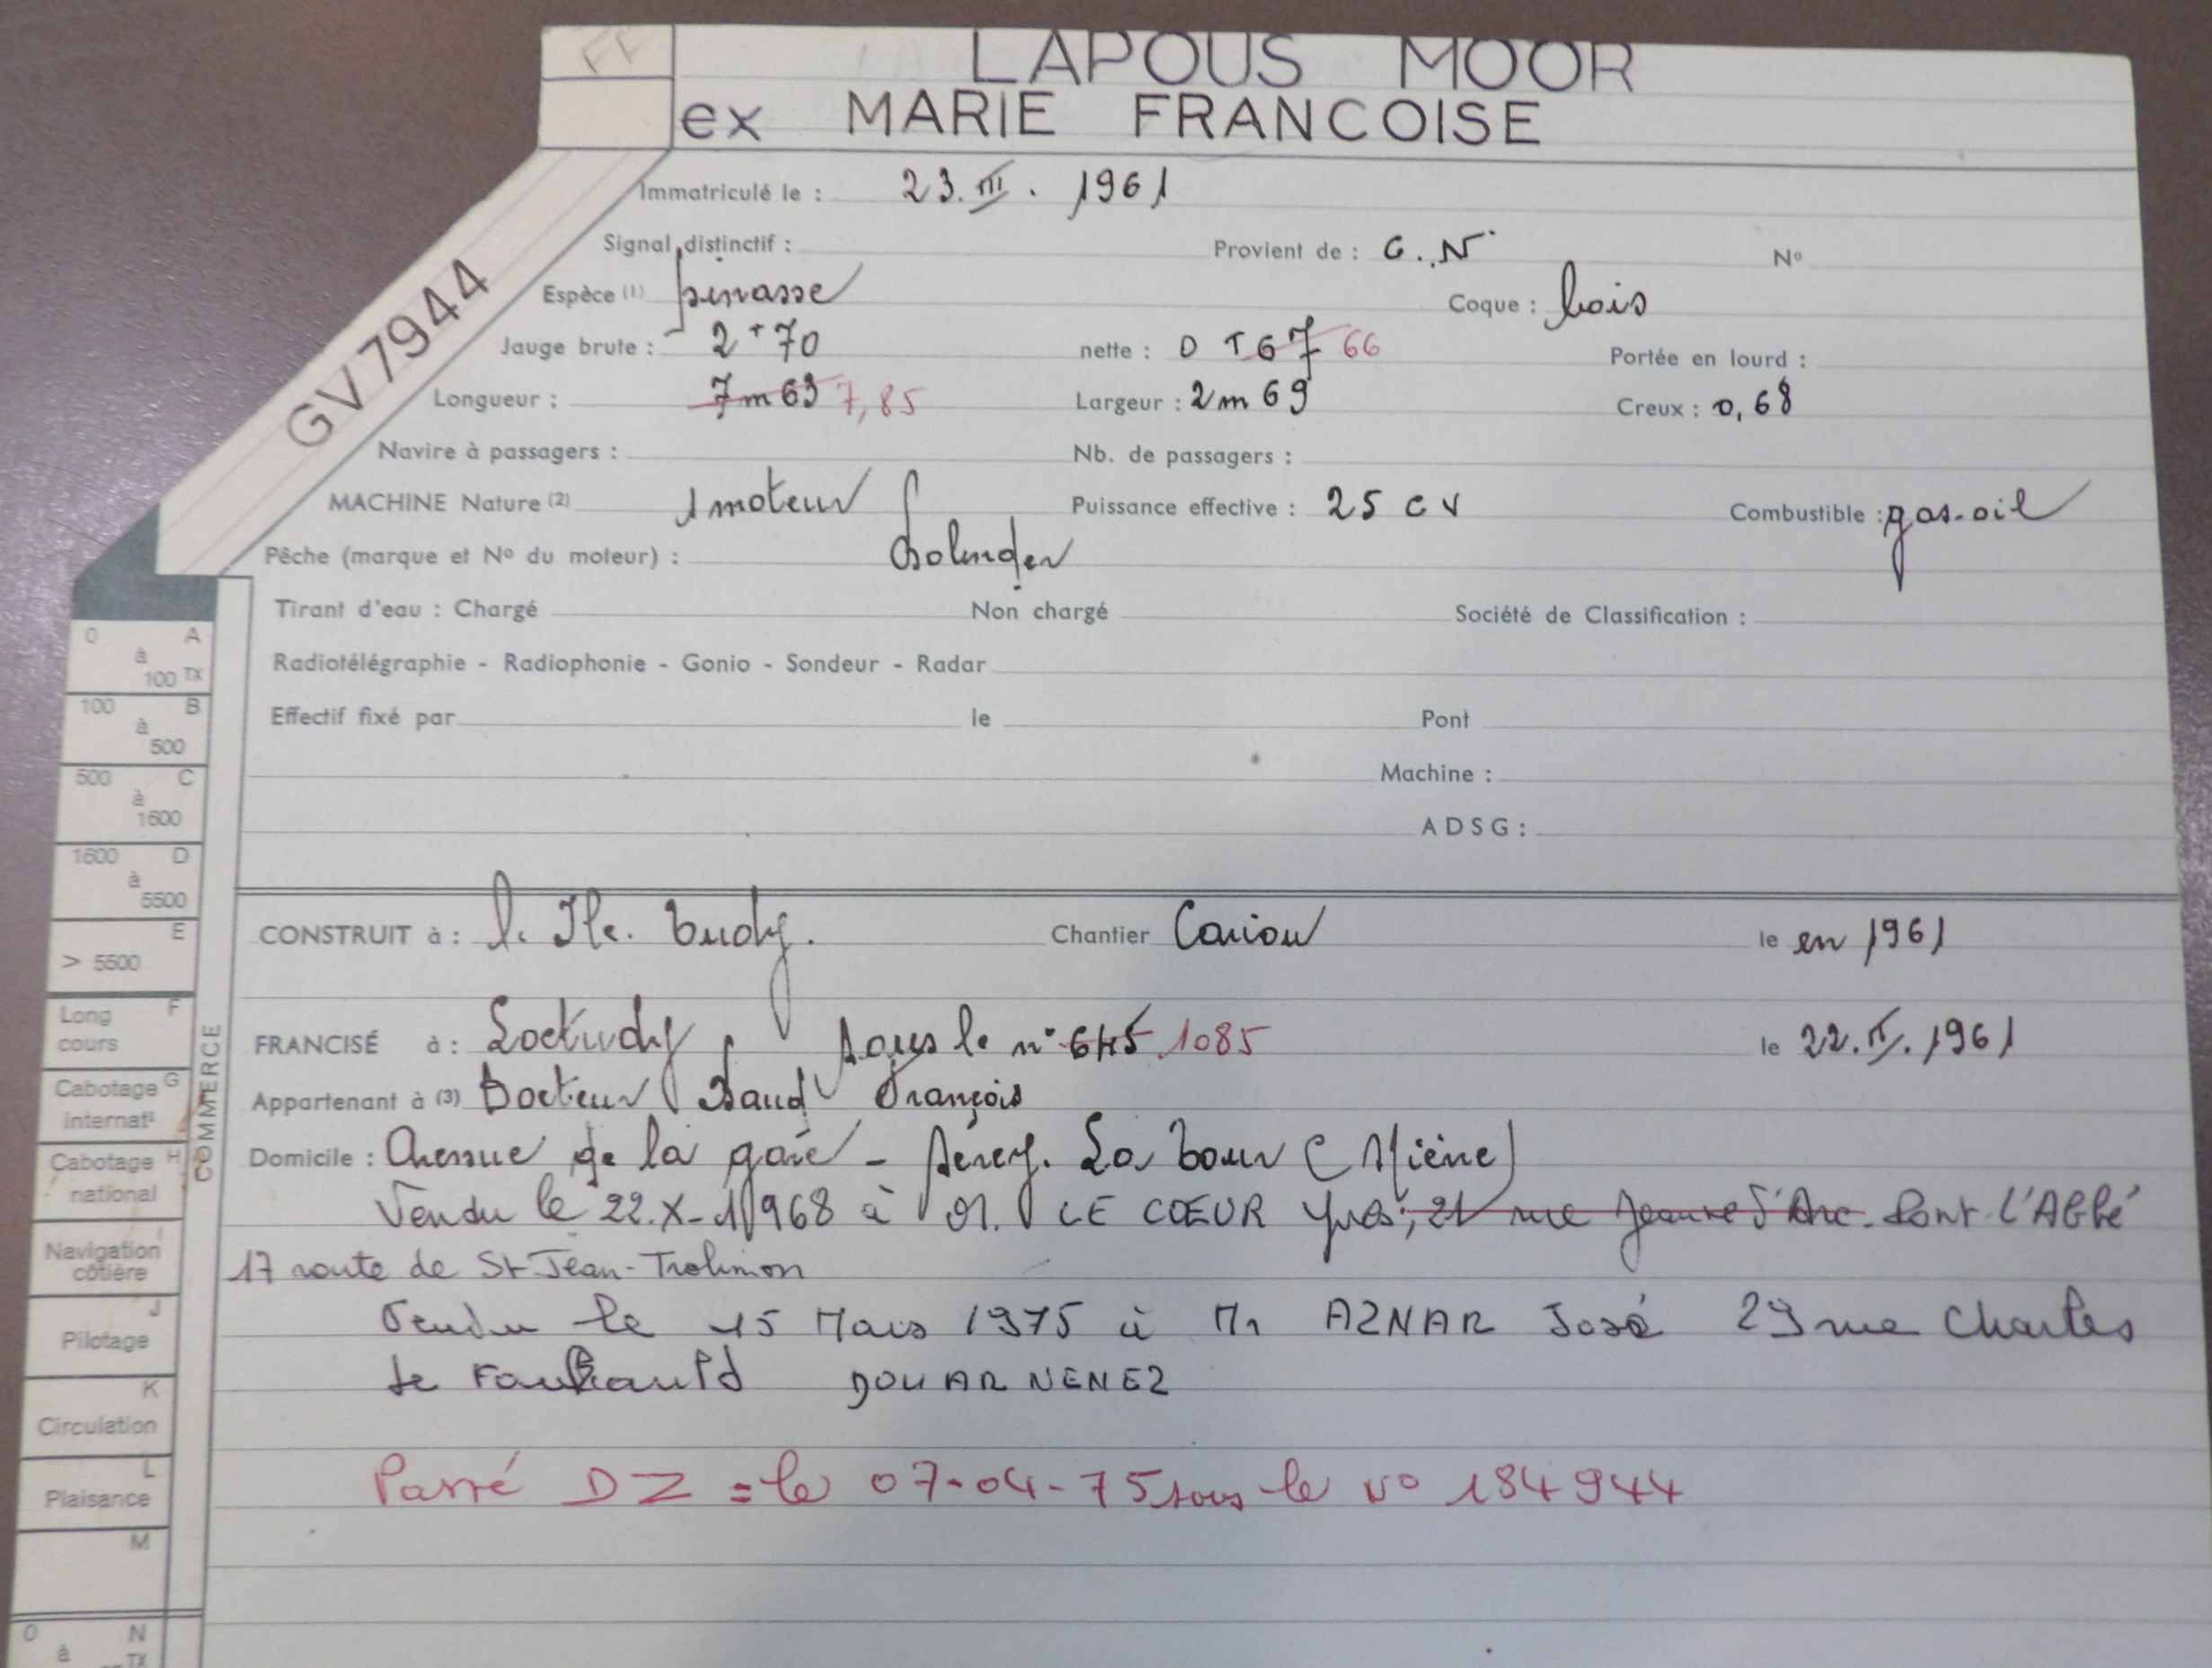 FF
LAPOUS MOOR
ex MARIE FRANCOISE
GV7944
Immatriculé le : 23. III. 1961
Signal distinctif : Provient de : C.N Nº
Espèce (1) pinasse Coque : bois
Jauge brute : 2 T 70 nette : 0 T 67 66 Portée en lourd :
Longueur : 7m63 7,85 Largeur : 2m69 Creux : 0,68
Navire à passagers : Nb. de passagers :
MACHINE Nature (2) 1 moteur Puissance effective : 25 CV Combustible : gas-oil
Pêche (marque et Nº du moteur) : Bolinder
Tirant d'eau : Chargé Non chargé Société de Classification :
Radiotélégraphie - Radiophonie - Gonio - Sondeur - Radar
Effectif fixé par le Pont
Machine :
ADSG :
CONSTRUIT à : l. Ile. Tudy. Chantier Cariou le en 1961
FRANCISÉ à : Loctudy sous le nº 645 1085 le 22. II. 1961
Appartenant à (3) Docteur Baud François
Domicile : Avenue de la gare - Percy. La Tour (Nièvre)
Vendu le 22.X-1968 à M. LE CŒUR Yves; 21 rue Jeanne d'Arc. Pont-l'Abbé
17 route de St-Jean-Trolimon
Vendu le 15 Mars 1975 à Mr AZNAR José 29 rue Charles
de Foucauld DOUARNENEZ
Passé DZ = le 07-04-75 sous le Nº 184944
0 A
à
100 TX
100 B
à
500
500 C
à
1600
1600 D
à
5500
E
> 5500
Long F
cours
Cabotage G
internatl
Cabotage H
national
I
Navigation
côtière
J
Pilotage
K
Circulation
L
Plaisance
M
0 N
à TX
COMMERCE